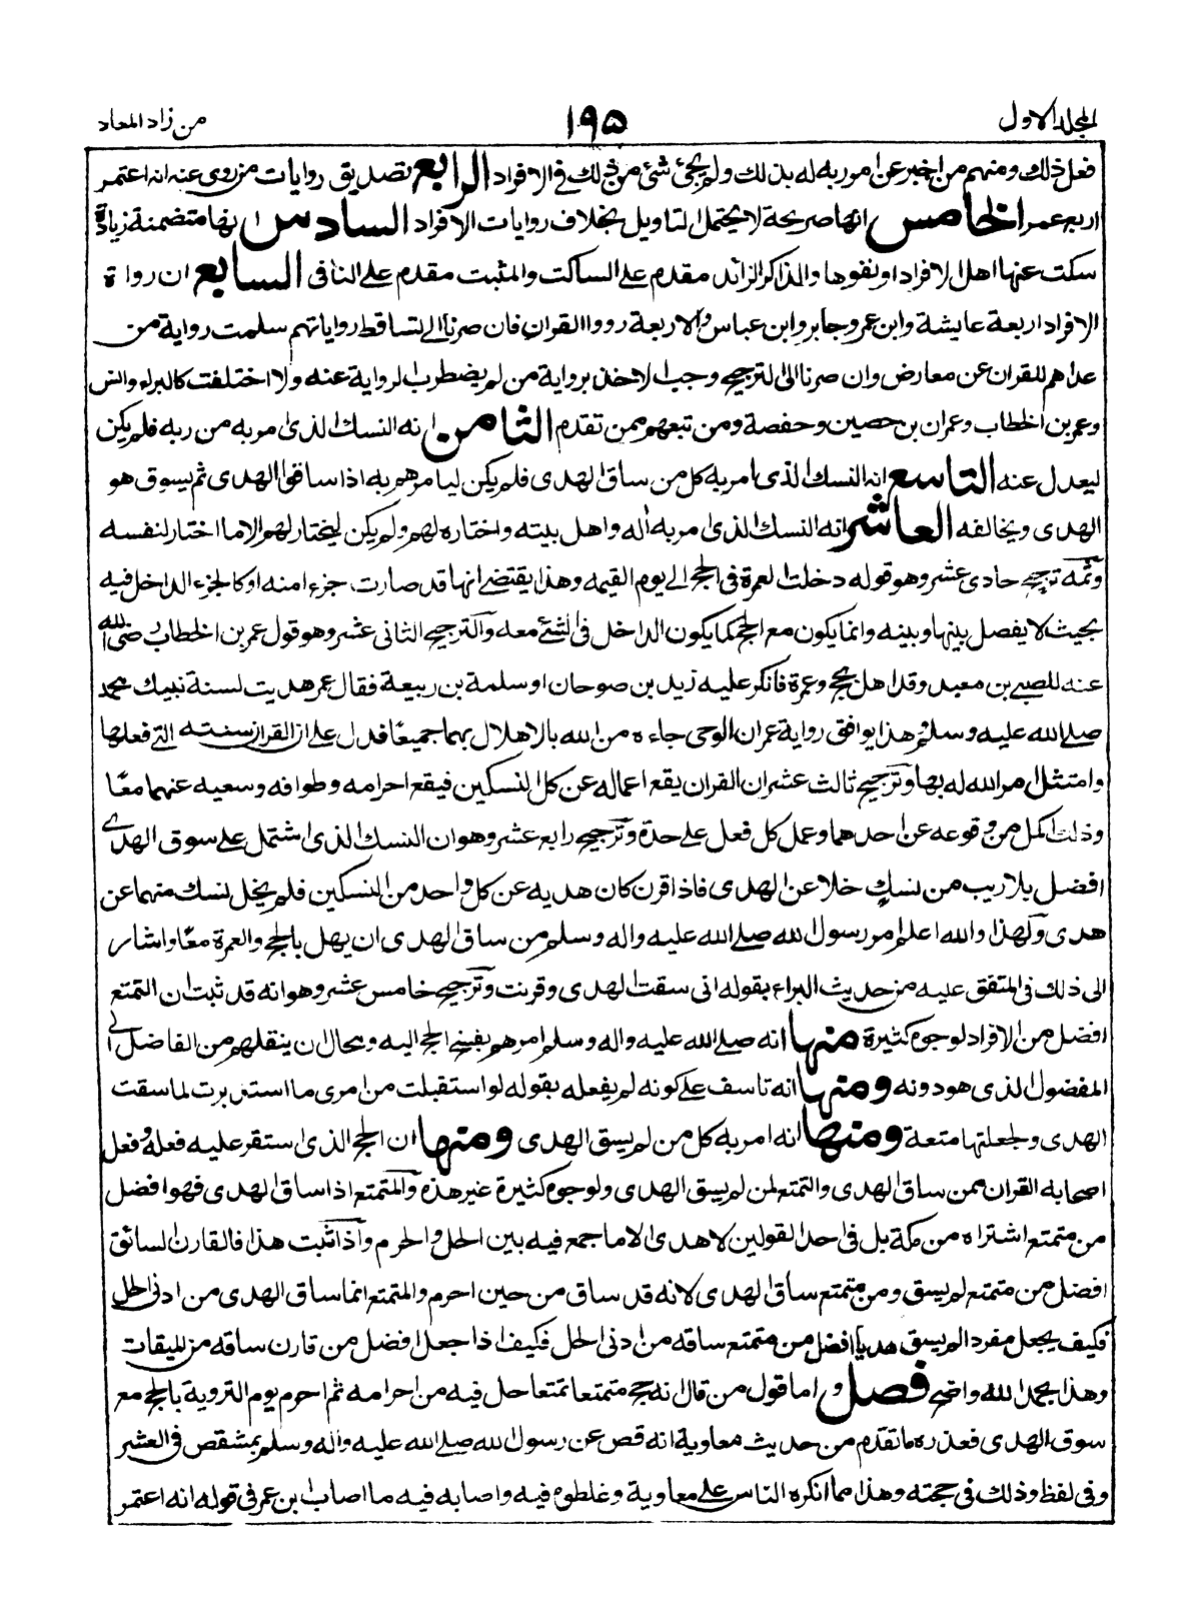 المجلد الاول
١٩٥
من زاد المعاد
فعل ذلك ومنهم من اخبر عن امر ربه له بذلك ولم يجئ شئ من ذلك في الافراد الرابع تصديق روايات من روى عنه انه اعتمر
اربع عمر الخامس انها صريحة لا يحتمل التاويل بخلاف روايات الافراد السادس انها متضمنة زيادة
سكت عنها اهل الافراد او نفوها والذاكر الزائد مقدم على الساكت والمثبت مقدم على النافى السابع ان رواة
الافراد اربعة عايشة وابن عمر وجابر وابن عباس والاربعة رووا القران فان صرنا الى تساقط رواياتهم سلمت رواية من
عداهم للقران عن معارض وان صرنا الى الترجيح وجب الاخذ برواية من لم يضطرب الرواية عنه ولا اختلفت كالبراء وانس
وعمر بن الخطاب وعمران بن حصين وحفصة ومن تبعهم ممن تقدم الثامن انه النسك الذى امر به من ربه فلم يكن
ليعدل عنه التاسع انه النسك الذى امر به كل من ساق الهدى فلم يكن ليامرهم به اذا ساقوا الهدى ثم يسوق هو
الهدى ويخالفه العاشر انه النسك الذى امر به اله واهل بيته واختاره لهم ولم يكن ليختار لهم الا ما اختار لنفسه
وثمه ترجيح حادى عشر وهو قوله دخلت العمرة فى الحج الى يوم القيمه وهذا يقتضى انها قد صارت جزءا منه او كالجزء الداخل فيه
بحيث لا يفصل بينها وبينه وانما يكون مع الحج كما يكون الداخل فى الشئ معه والترجيح الثانى عشر وهو قول عمر بن الخطاب رضى الله
عنه للصبى بن معبد وقد اهل بحج وعمرة فانكر عليه زيد بن صوحان او سلمة بن ربيعة فقال عمر هديت لسنة نبيك محمد
صلى الله عليه وسلم وهذا يوافق رواية عمر ان الوحى جاءه من الله بالاهلال بهما جميعا فدل على ان القران سنته التى فعلها
وامتثل امر الله له بها وترجيح ثالث عشر ان القران يقع اعماله عن كل النسكين فيقع احرامه وطوافه وسعيه عنهما معا
وذلك اكمل من وقوعه عن احدهما وعمل كل فعل على حدة وترجيح رابع عشر وهو ان النسك الذى اشتمل على سوق الهدى
افضل بلا ريب من نسك خلا عن الهدى فاذا قرن كان هديه عن كل واحد من النسكين فلم يخل نسك منهما عن
هدى ولهذا والله اعلم امر رسول الله صلى الله عليه واله وسلم من ساق الهدى ان يهل بالحج والعمرة معا واشار
الى ذلك فى المتفق عليه من حديث البراء بقوله انى سقت الهدى وقرنت وترجيح خامس عشر وهو انه قد ثبت ان التمتع
افضل من الافراد لوجوه كثيرة منها انه صلى الله عليه واله وسلم امرهم بفسخ الحج اليه ومحال ان ينقلهم من الفاضل الى
المفضول الذى هو دونه ومنها انه تاسف على كونه لم يفعله بقوله لو استقبلت من امرى ما استدبرت لما سقت
الهدى ولجعلتها متعة ومنها انه امر به كل من لم يسق الهدى ومنها ان الحج الذى استقر عليه فعله وفعل
اصحابه القران ممن ساق الهدى والتمتع لمن لم يسق الهدى ولوجوه كثيرة غير هذه والمتمتع اذا ساق الهدى فهو افضل
من متمتع اشتراه من مكة بل فى احد القولين لا هدى الا ما جمع فيه بين الحل والحرم واذا ثبت هذا فالقارن السائق
افضل من متمتع لم يسق ومن متمتع ساق الهدى لانه قد ساق من حين احرم والمتمتع انما ساق الهدى من ادنى الحل
فكيف يجعل مفرد لم يسق هديا افضل من متمتع ساقه من ادنى الحل فكيف اذا جعل افضل من قارن ساقه من الميقات
وهذا بحمد الله واضح فصل واما قول من قال انه حج متمتعا تمتعا حل فيه من احرامه ثم احرم يوم التروية بالحج مع
سوق الهدى فعذره ما تقدم من حديث معاوية انه قص عن رسول الله صلى الله عليه واله وسلم بمشقص فى العشر
وفى لفظ وذلك فى حجته وهذا مما انكره الناس على معاوية وغلطوه فيه واصابه فيه ما اصاب ابن عمر فى قوله انه اعتمر